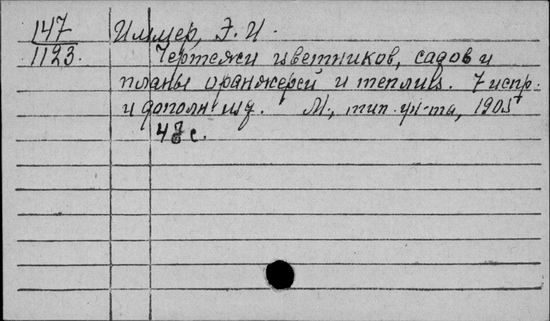 147 Иммер, Э. И.
1123. Чертежи цветников, садов и
планы оранжерей и теплиц. 7 испр.
и дополн изд. М., тип. ун-та, 1905
48 с.